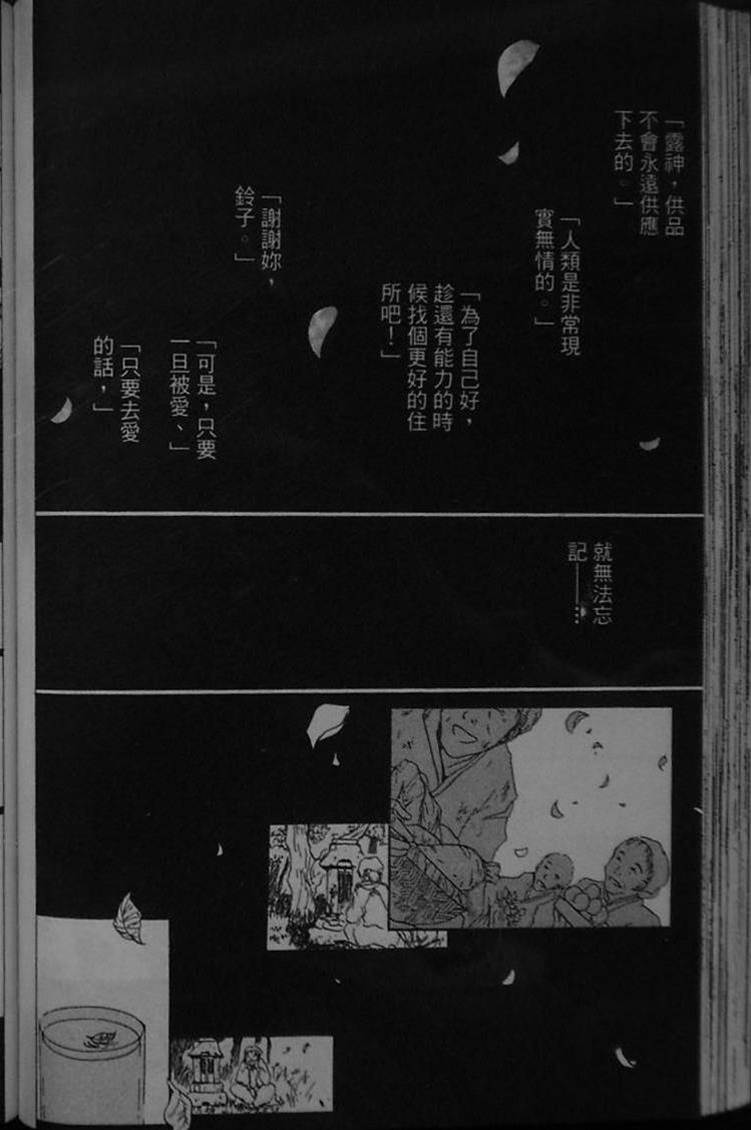 「露神，供品
不會永遠供應
下去的。」
「人類是非常現
實無情的。」
「為了自己好，
趁還有能力的時
候找個更好的住
所吧！」
「謝謝妳，
鈴子。」
「可是，只要
一旦被愛、」
「只要去愛
的話，」
就無法忘
記——…